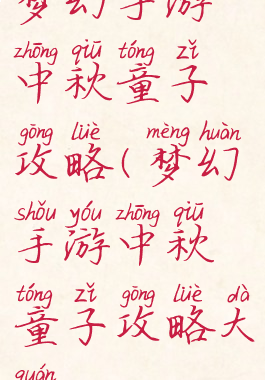 梦幻手游
zhōng qiū tóng zǐ
中秋童子
gōng lüè mèng huàn
攻略(梦幻
shǒu yóu zhōng qiū
手游中秋
tóng zǐ gōng lüè dà
童子攻略大
quán